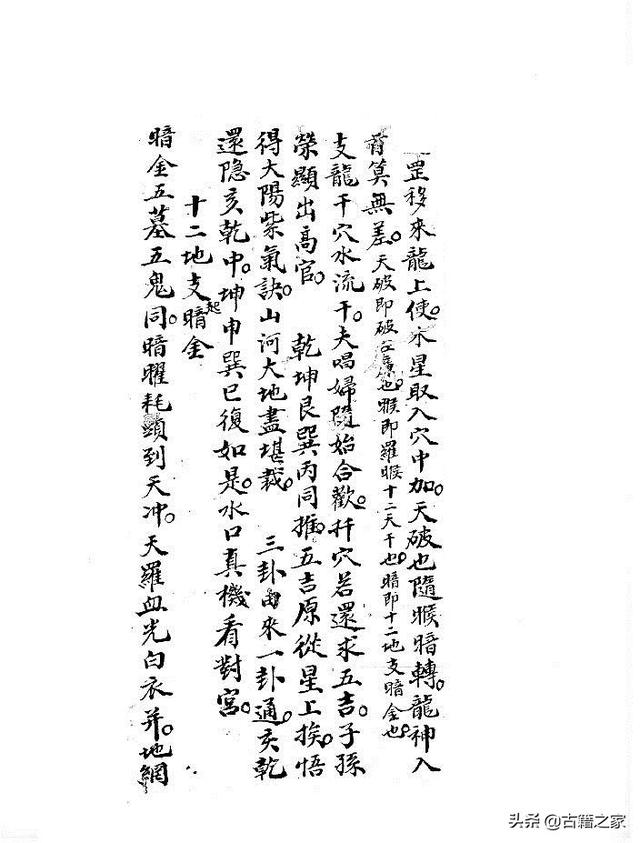 罡移來龍上使。木星取入穴中加。天破也隨㬋暗轉。龍神入
首算無差。天破即破也。㬋即羅㬋十二天干也。暗即十二地支暗金也。
支龍干穴水流干。夫唱婦隨始合歡。扦穴若還求五吉。子孫
榮顯出高官。 乾坤艮巽丙同推。五吉原從星上挨。悟
得大陽柴氣訣。山河大地盡堪裁。 三卦由來一卦通。亥乾
還隐亥乾中。坤申巽巳復如是。水口真機看對宮。
十二地支起暗金
暗金五墓五鬼同。暗曜耗頭到天冲。天羅血光白衣并。地網
头条 @古籍之家